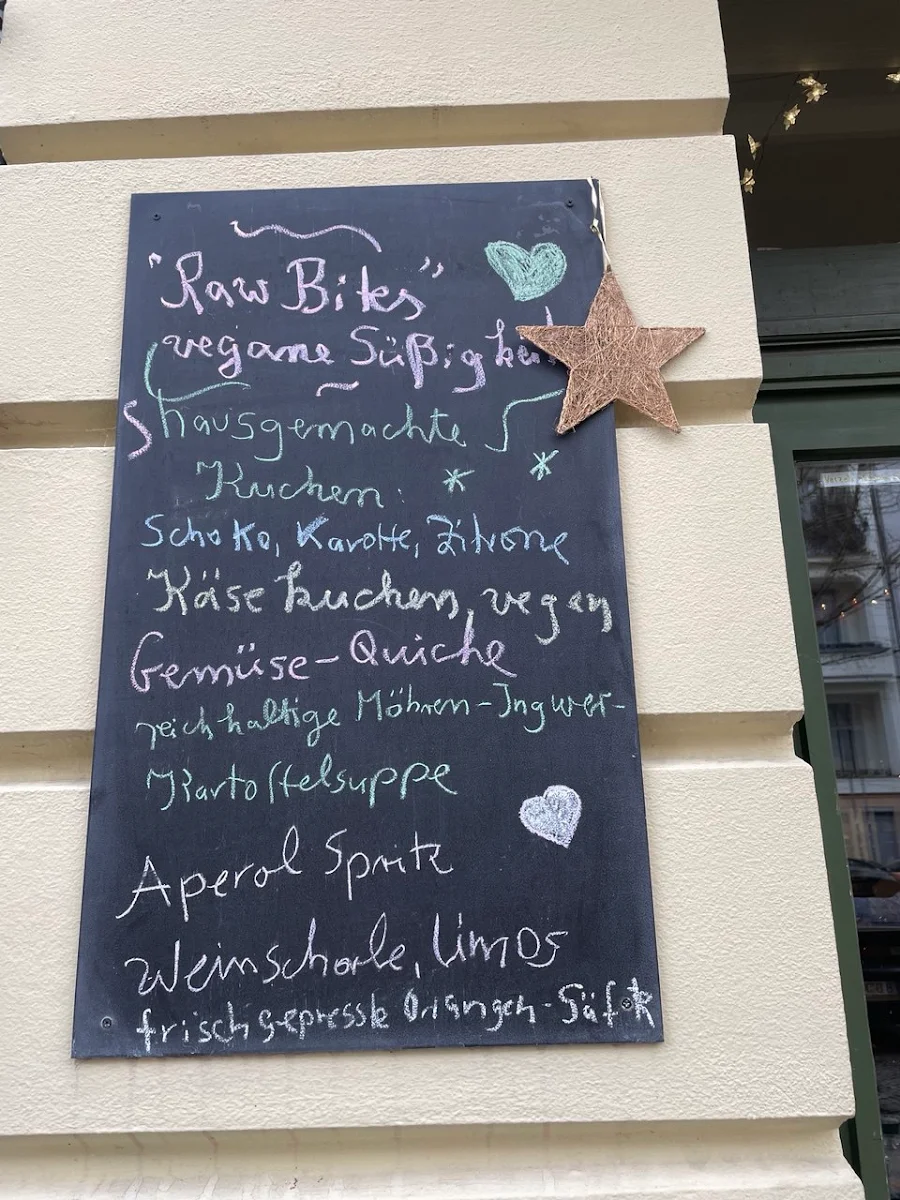 "Raw Bites"
vegane Süßigkeit
hausgemachte
Kuchen:
Schoko, Karotte, Zitrone
Käsekuchen, vegan
Gemüse-Quiche
reichhaltige Möhren-Ingwer-
Kartoffelsuppe
Aperol Spritz
Weinschorle, Limos
frisch gepresste Orangen-Säfte